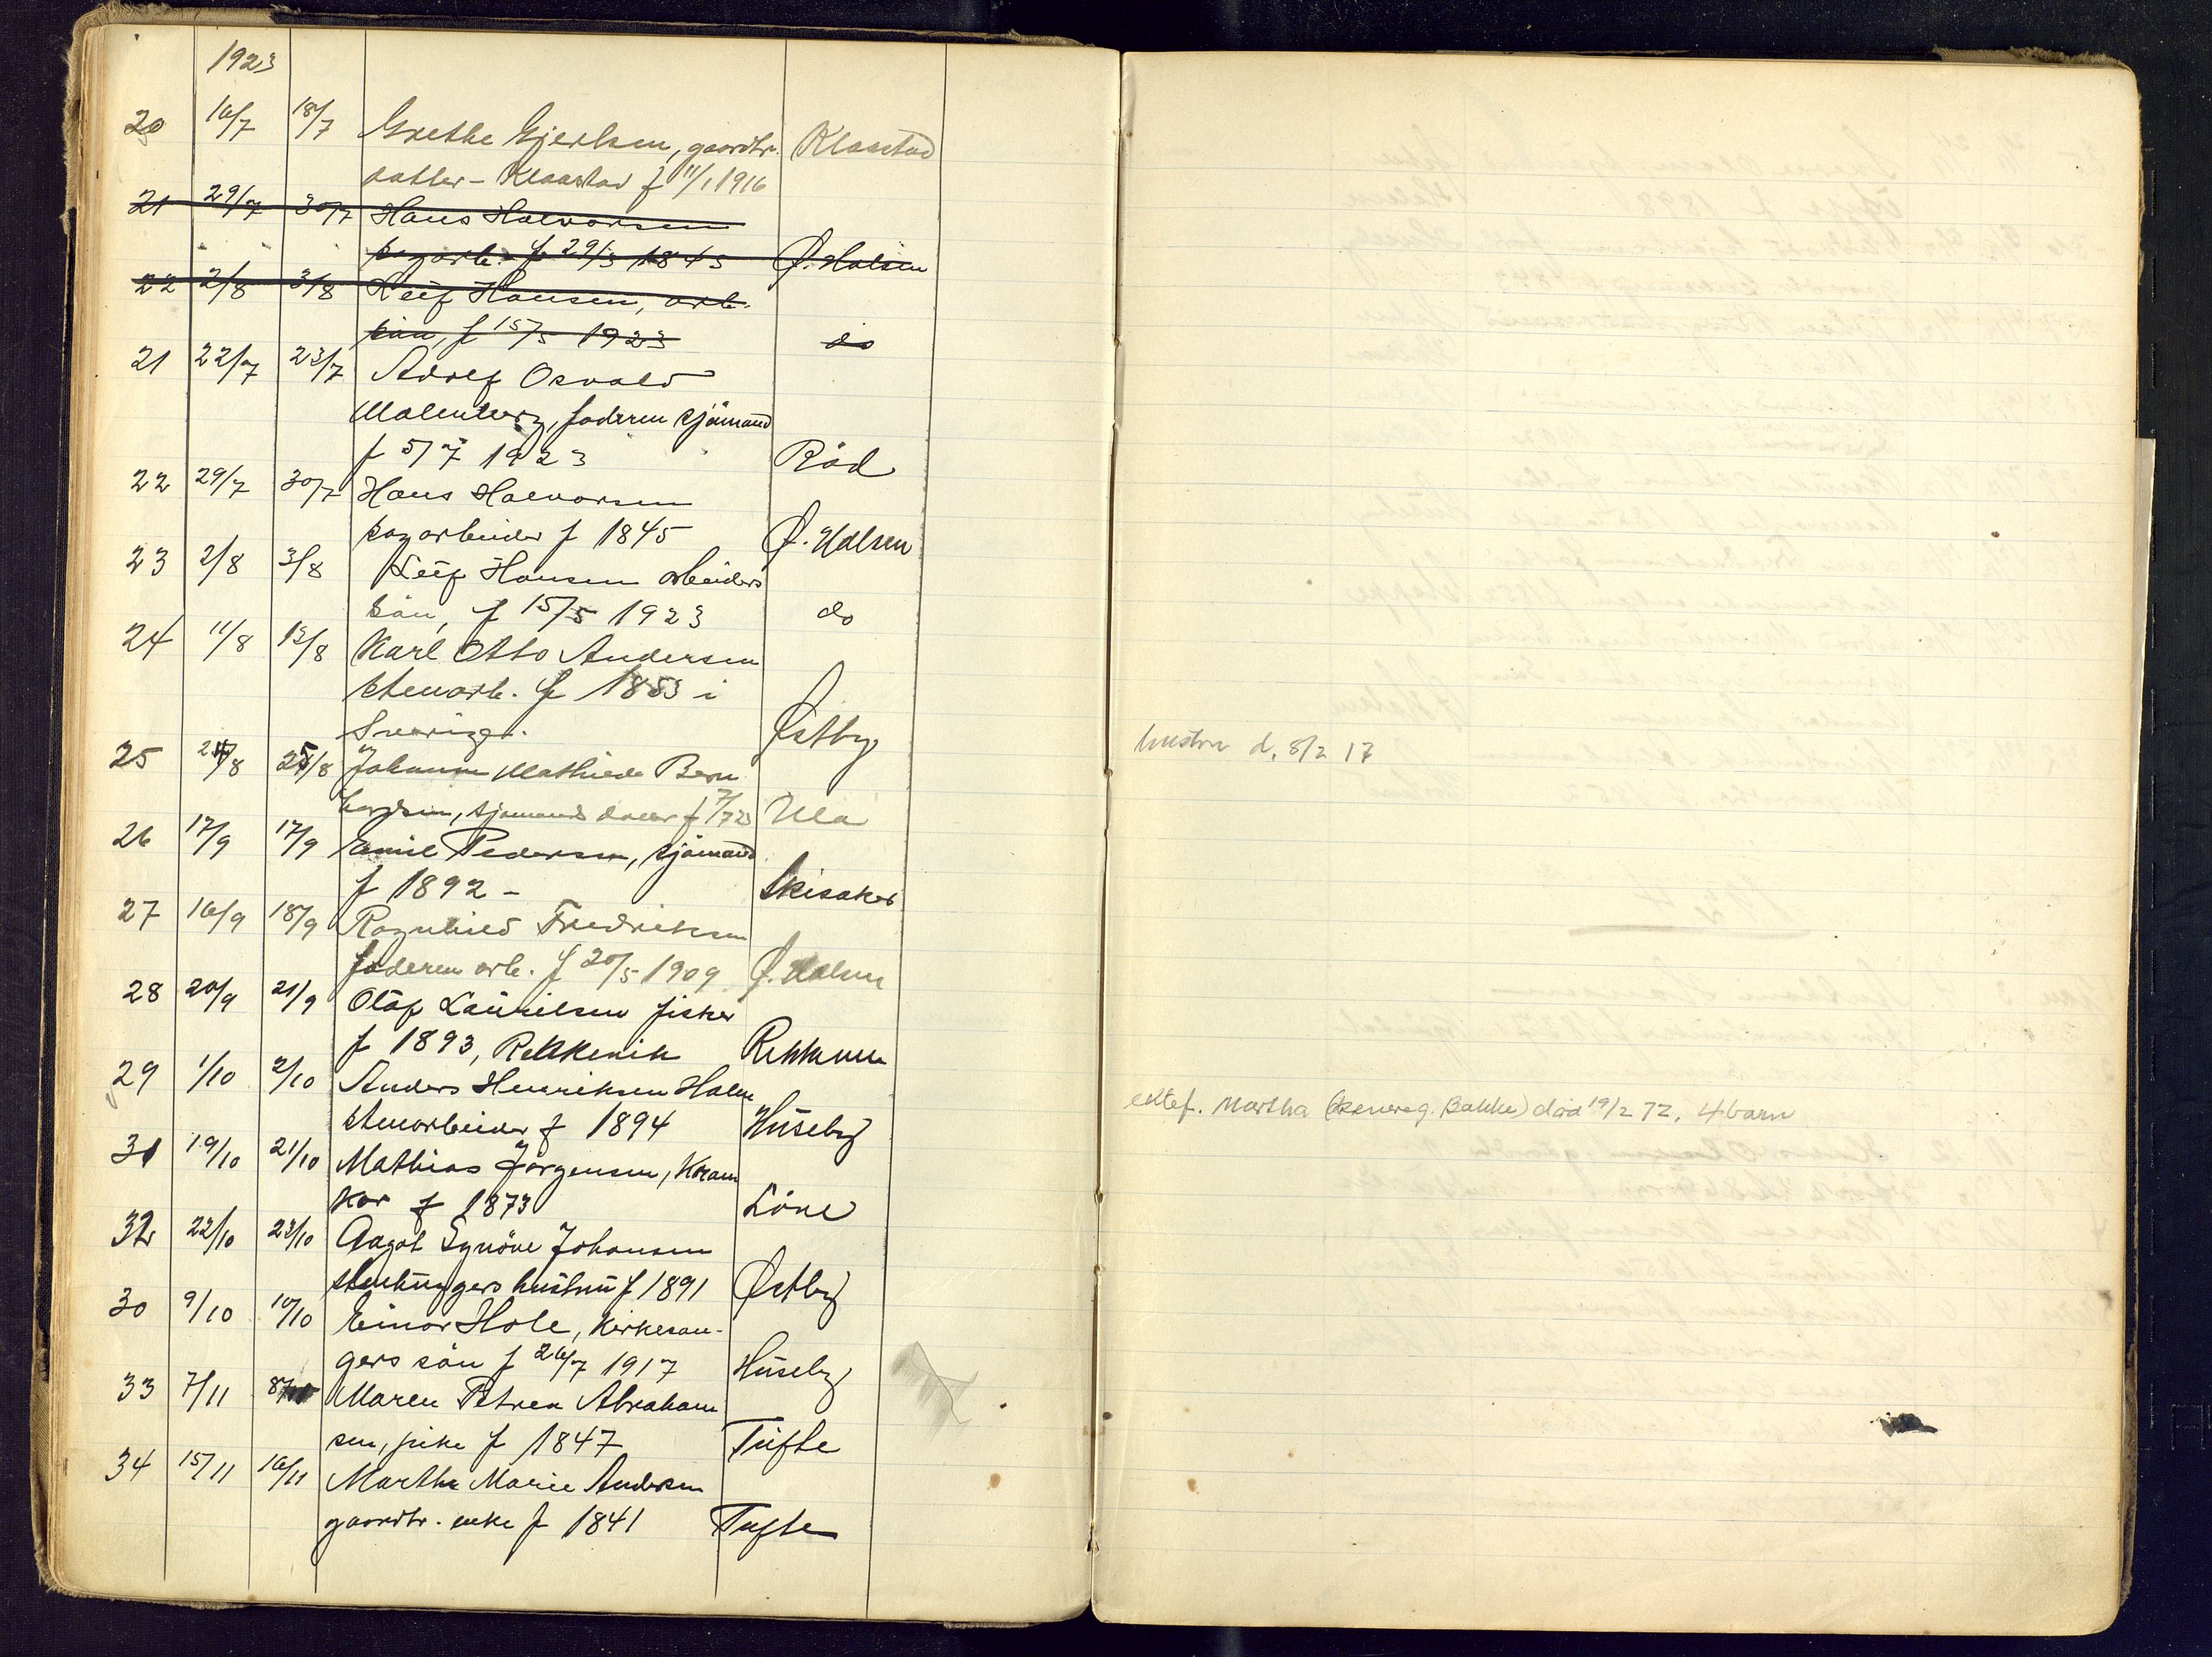 1923
20 16/7 18/7 Grethe Gjertsen, gaardbr. Klaastad
datter - Klaastad f 11/1 1916
21 29/7 30/7 Hans Halvorsen
sagarb. f 29/3 1845 Ø. Halsen
22 2/8 3/8 Leif Hansen, arb.
sön, f 15/5 1923 do
21 22/7 23/7 Adolf Osvald
Malmberg, faderen sjömand
f 5/7 1923 Röd
22 29/7 30/7 Hans Halvorsen
sagarbeider f 1845 Ø. Halsen
23 2/8 3/8 Leif Hansen arbeiders
sön, f 15/5 1923 do
24 11/8 13/8 Karl Otto Andersen
stenarb. f 1853 i
Sverige. Østby
25 24/8 25/8 Johanne Mathilde Bern
hardsen, sjömands datter f 7/7 23 Ula
26 17/9 17/9 Emil Pedersen, sjömand
f 1892 - Skisaker
27 16/9 18/9 Ragnhild Fredriksen
faderen arb. f 20/5 1909 Ø. Halsen
28 20/9 21/9 Olaf Lauritsen fisker
f 1893, Rekkevik Rekkevik
29 1/10 2/10 Anders Henriksen Holm
stenarbeider f 1894 Huseby
31 19/10 21/10 Mathias Jörgensen, kram
kar f 1873 Löve
32 22/10 23/10 Aagot Synöve Johansen
stenhuggers hustru f 1891 Østby
30 9/10 10/10 Einar Hole, kirkesan-
gers sön f 26/7 1917 Huseby
33 7/11 8/11 Maren Petrea Abraham
sen, pike f 1847 Tufte
34 15/11 16/11 Marthe Marie Andersen
gaardbr. enke f 1841 Tufte
hustru d. 8/2 17
ektef. Martha g. Bakke) död 19/2 72. 4 barn